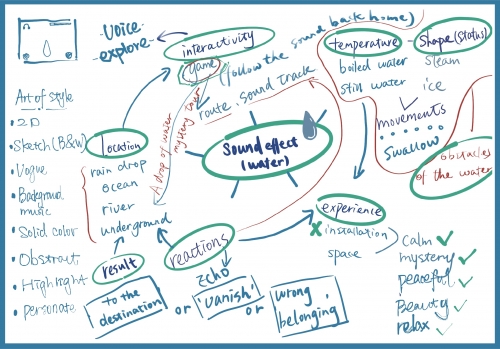 Voice-
explore
interactivity
game
(follow the sound back home)
route. sound track
temperature
boiled water
still water
Shape(status)
Steam
ice
movements
Swallow
obstacles
of the water
Sound effect
(water)
A drop of water
mystery tour
Art of style
• 2D
• Sketch(B&W)
• Vogue
• Background
music
• Solid color
• Obstract
• Highlight
• Personate
location
rain drop
ocean
river
underground
result
to the
destination
or
reactions
Echo
'vanish'
or
wrong
belonging
experience
x installation
space
Calm ✓
mystery ✓
peaceful ✓
Beauty ✓
relax ✓